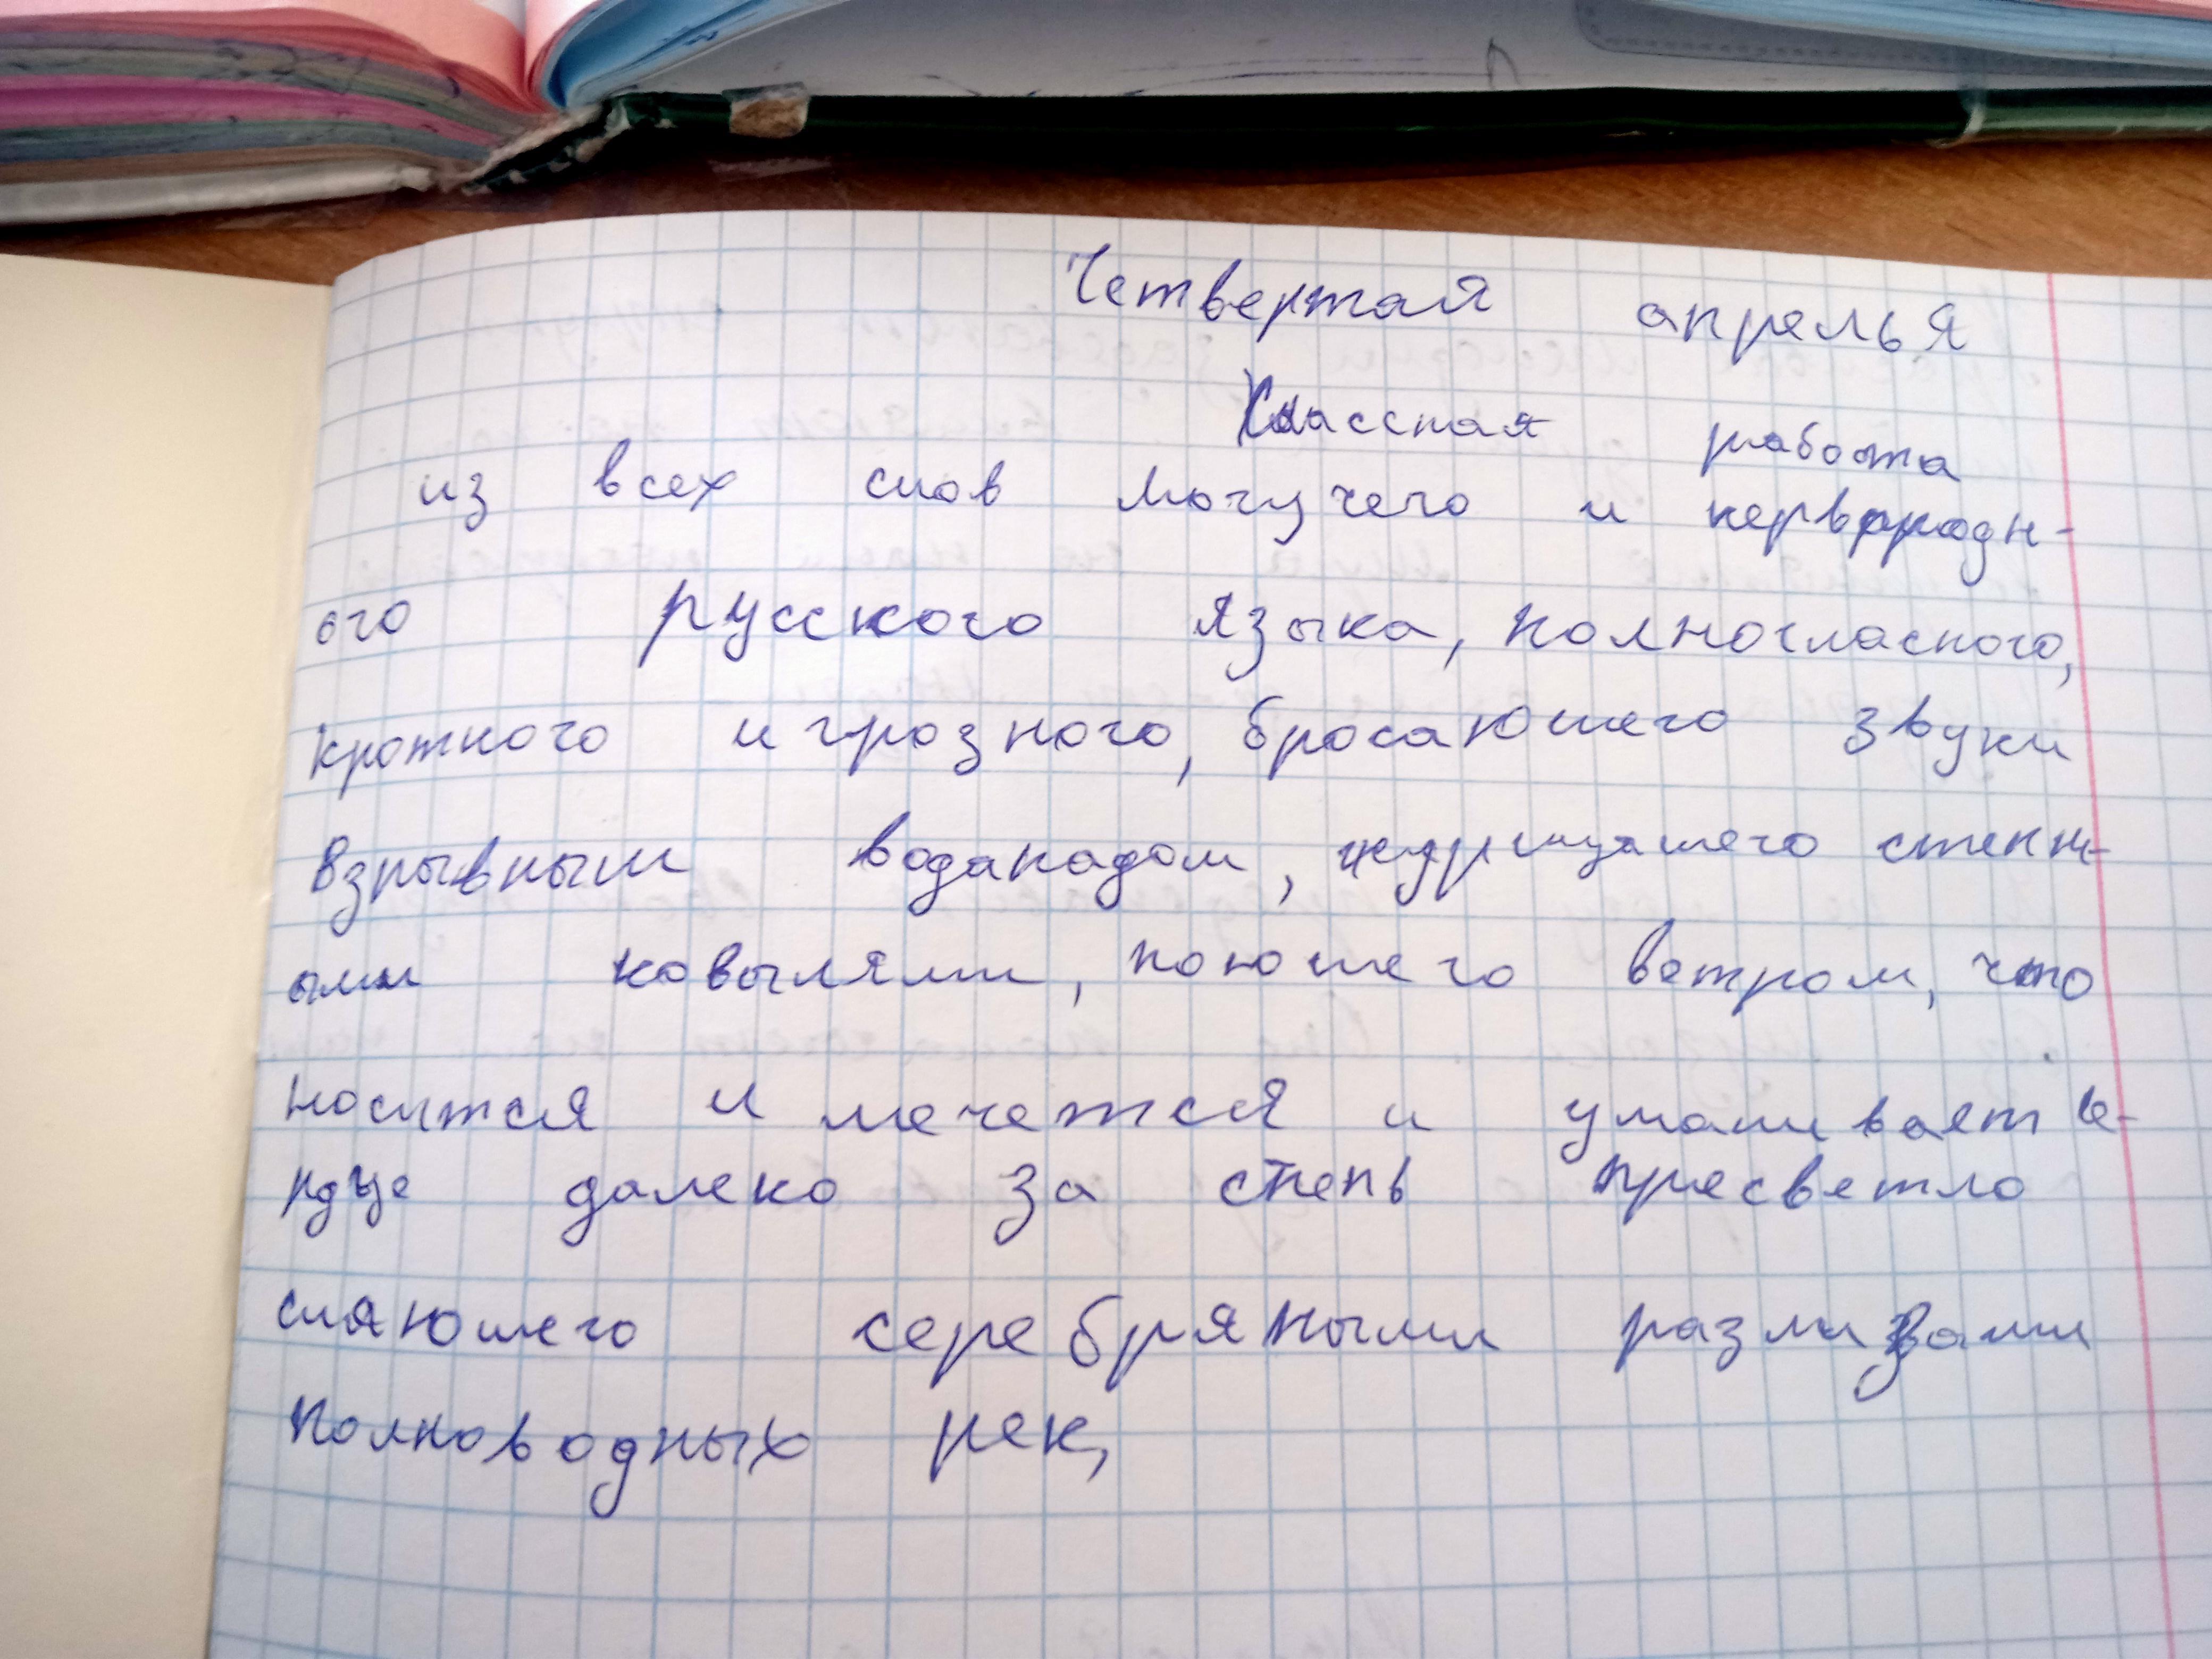 Четвертая апрелья
Классная работа
из всех слов могучего и первородн-
ого русского языка, полногласного,
кротного и грозного, бросаюшего звуки
взрывным водападом, журчащашего степн-
ыми ковылями, поюшего ветром, что
носится и мечется и умашивает се-
рдце далеко за степь пресветло
сияюшего серебряными разливами
полноводных рек,